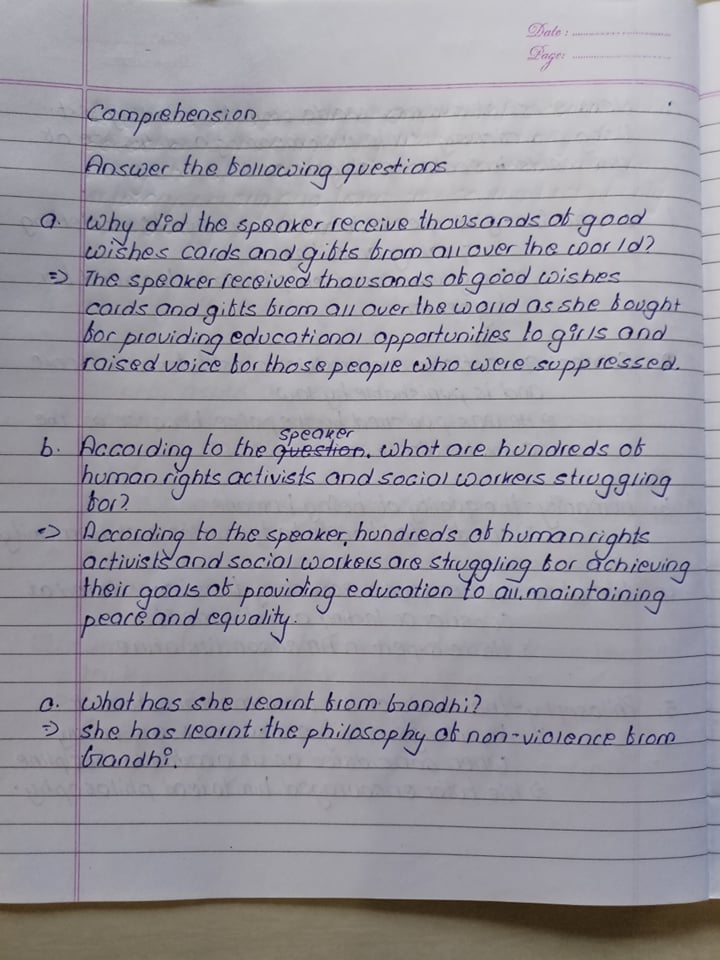 Date :
Page:
Comprehension
Answer the following questions
a. Why did the speaker receive thousands of good
wishes cards and gifts from all over the world?
=> The speaker received thousands of good wishes
cards and gifts from all over the world as she fought
for providing educational opportunities to girls and
raised voice for those people who were suppressed.
speaker
b. According to the question, what are hundreds of
human rights activists and social workers struggling
for?
=> According to the speaker, hundreds of human rights
activists and social workers are struggling for achieving
their goals of providing education to all, maintaining
peace and equality.
a. What has she learnt from Gandhi?
=> She has learnt the philosophy of non-violence from
Gandhi.